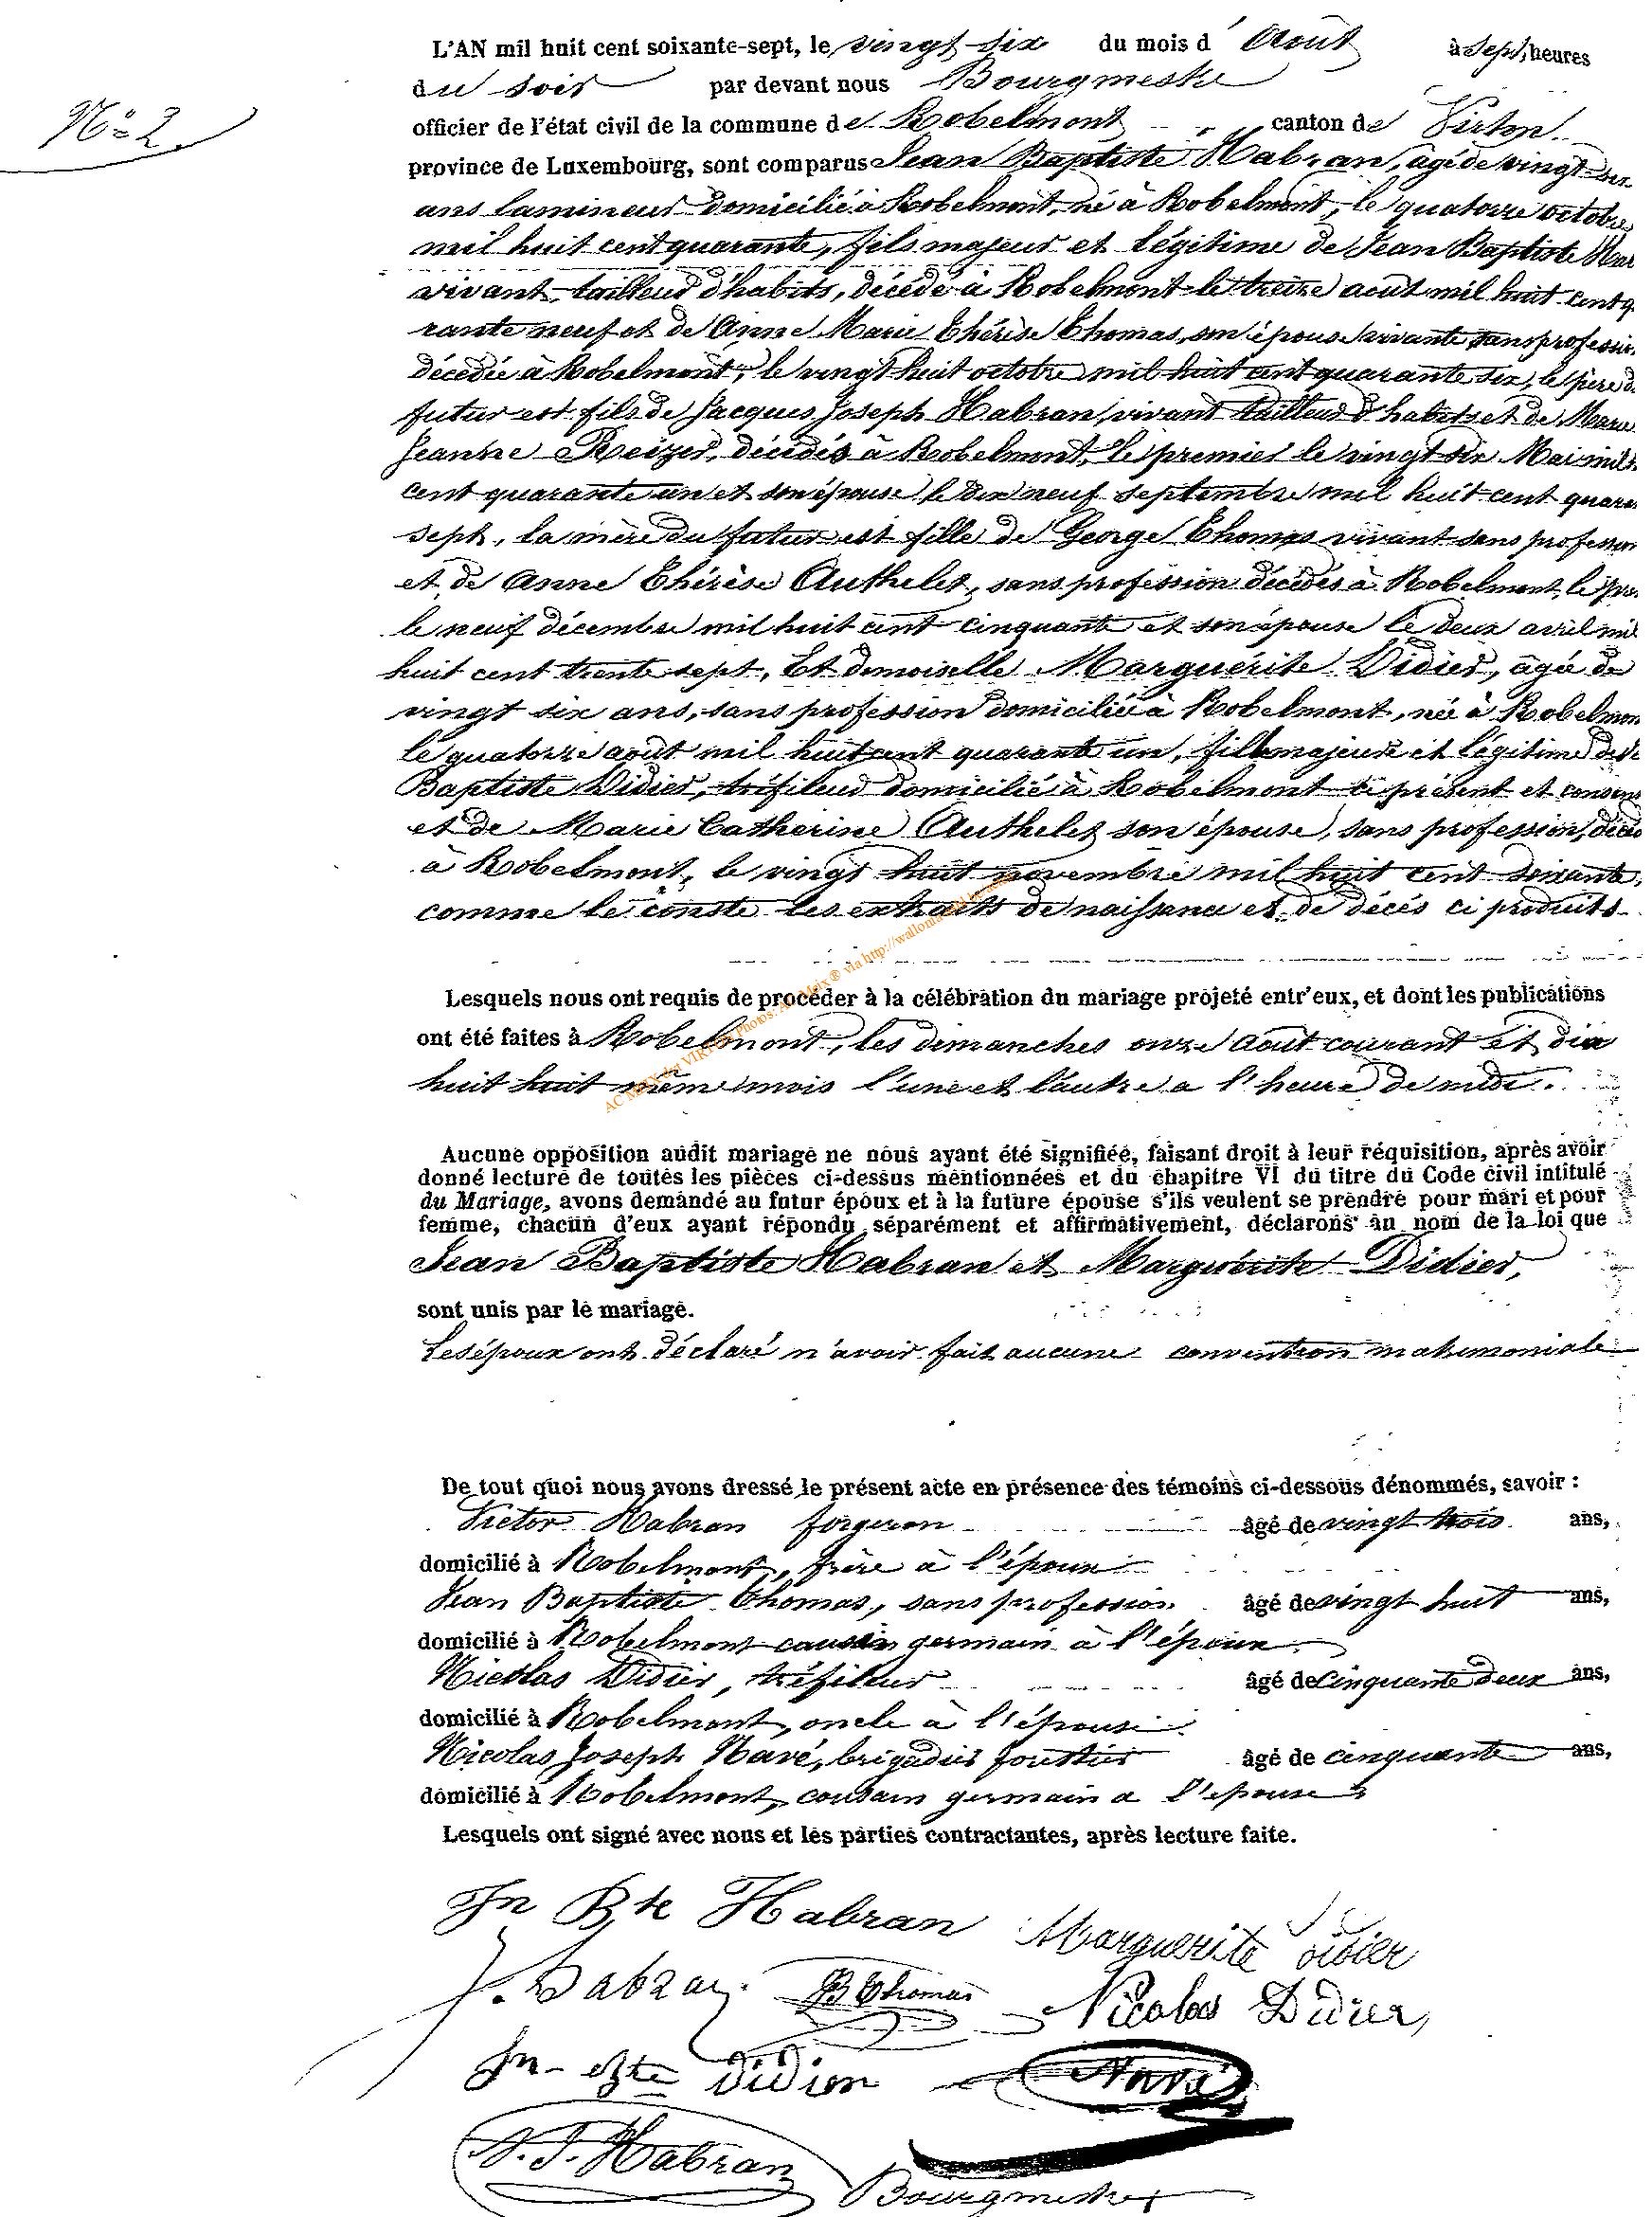 N° 2.
L'AN mil huit cent soixante-sept, le vingt six du mois d'Août à sept heures
du soir par devant nous Bourgmestre
officier de l'état civil de la commune de Robelmont canton de Virton
province de Luxembourg, sont comparus Jean Baptiste Habran, âgé de vingt six
ans lamineur domicilié à Robelmont, né à Robelmont, le quatorze octobre
mil huit cent quarante, fils majeur et légitime de Jean Baptiste Ha
vivant tailleur d'habits, décédé à Robelmont le treize août mil huit cent q
rante neuf et de Anne Marie Thérèse Thomas, son épouse vivante sans professi
décédée à Robelmont, le vingt huit octobre mil huit cent quarante six, le père d
futur est fils de Jacques Joseph Habran, vivant tailleur d'habits et de Marie
Jeanne Reizer, décédés à Robelmont, le premier le vingt six Mai mil
cent quarante un et son épouse le dix neuf septembre mil huit cent quaran
sept, la mère du futur est fille de George Thomas vivant sans profession
et de Anne Thérèse Authelet, sans profession décédés à Robelmont, le pr
le neuf décembre mil huit cent cinquante et son épouse le deux avril mil
huit cent trente sept, Et demoiselle Marguérite Didier, âgée de
vingt six ans, sans profession domiciliée à Robelmont, née à Robelmon
le quatorze août mil huit cent quarante un, fille majeure et légitime de
Baptiste Didier, tréfileur domicilié à Robelmont ci présent et consen
et de Marie Catherine Authelet son épouse, sans profession, décéd
à Robelmont, le vingt huit novembre mil huit cent soixante,
comme le conste les extraits de naissance et de décès ci produits.
Lesquels nous ont requis de procéder à la célébration du mariage projeté entr'eux, et dont les publications
ont été faites à Robelmont, les dimanches onze août courant et dix
huit huit même mois l'une et l'autre a l'heure de midi.
Aucune opposition audit mariage ne nous ayant été signifiée, faisant droit à leur réquisition, après avoir
donné lecture de toutes les pièces ci-dessus mentionnées et du chapitre VI du titre du Code civil intitulé
du Mariage, avons demandé au futur époux et à la future épouse s'ils veulent se prendre pour mari et pour
femme, chacun d'eux ayant répondu séparément et affirmativement, déclarons au nom de la loi que
Jean Baptiste Habran et Marguérite Didier,
sont unis par le mariage.
Les époux ont déclaré n'avoir fait aucune convention matrimoniale
De tout quoi nous avons dressé le présent acte en présence des témoins ci-dessous dénommés, savoir :
Victor Habran forgeron âgé de vingt trois ans,
domicilié à Robelmont, frère à l'époux
Jean Baptiste Thomas, sans profession âgé de vingt huit ans,
domicilié à Robelmont cousin germain à l'époux
Nicolas Didier, tréfileur âgé de cinquante deux ans,
domicilié à Robelmont, oncle à l'épouse
Nicolas Joseph Navé, brigadier forestier âgé de cinquante ans,
domicilié à Robelmont, cousain germain a l'épouse
Lesquels ont signé avec nous et les parties contractantes, après lecture faite.
Jn Bte Habran Marguerite Didier
V. Habran JB Thomas Nicolas Didier,
Jn Bte Didier Navé
N. J. Habran
Bourgmestre